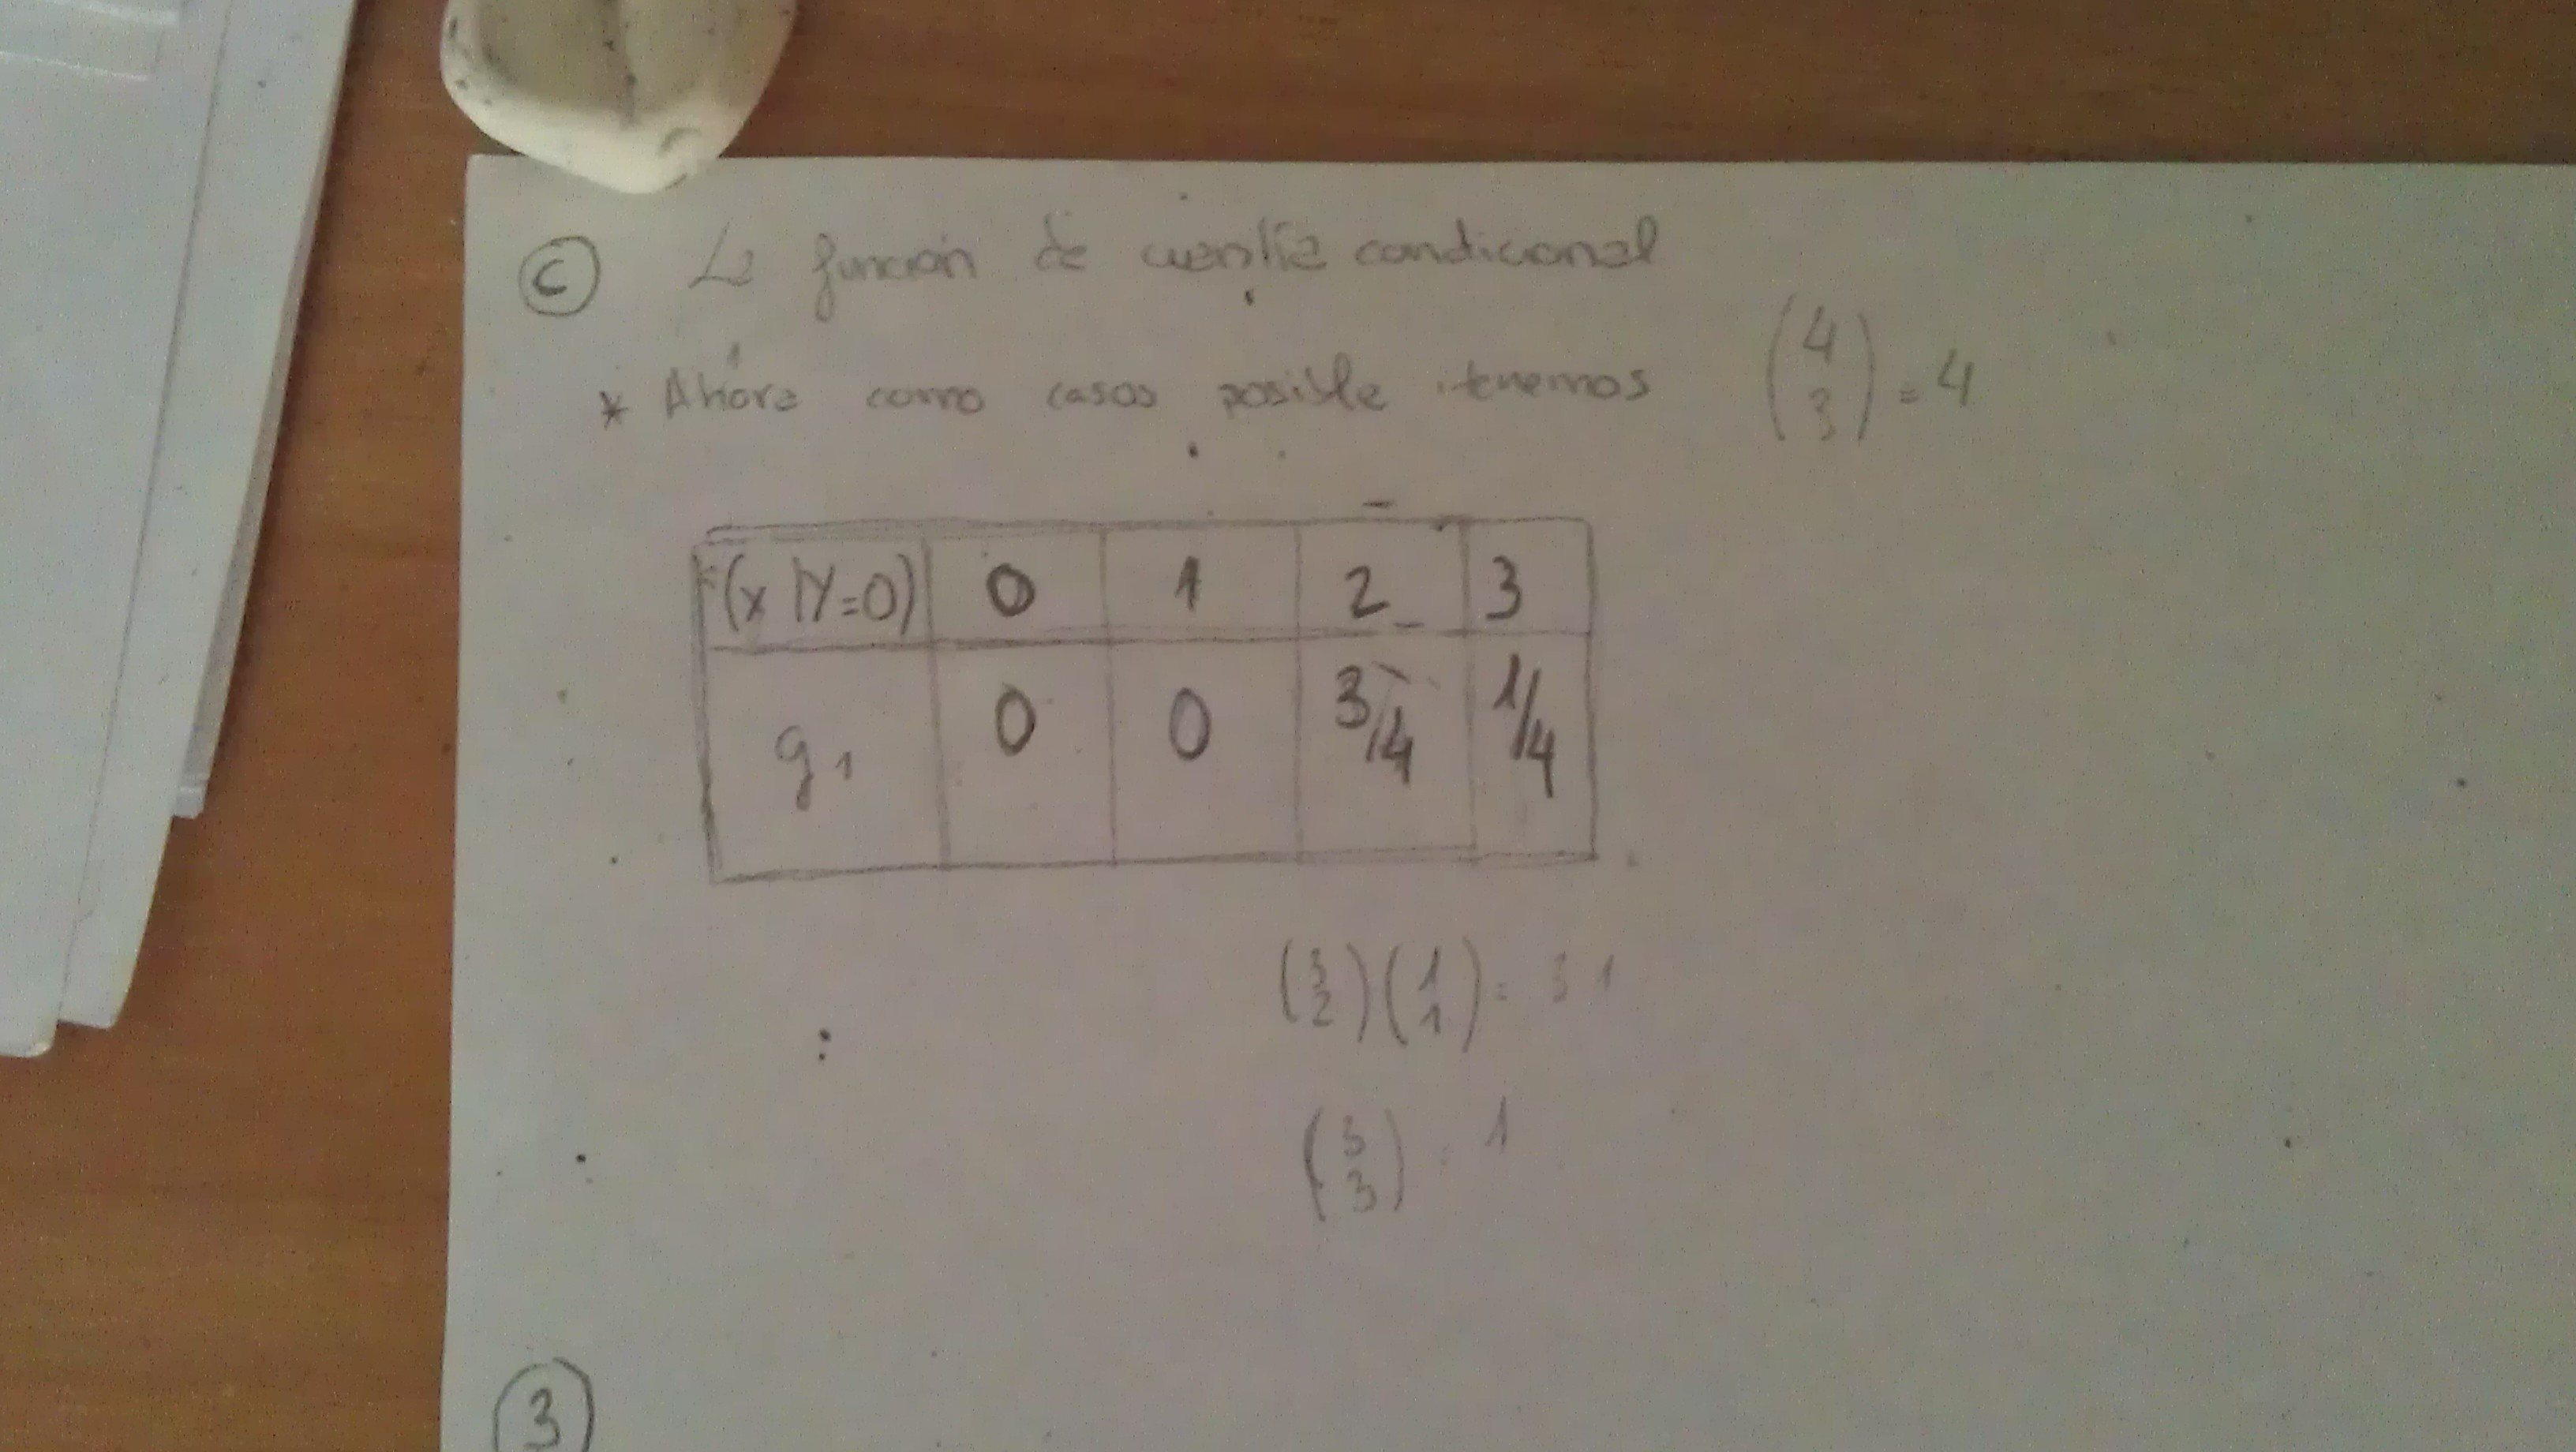 C La función de cuantía condicional
* Ahora como casos posible tenemos (4 3) = 4
(x | Y=0) 0 1 2 3
g1 0 0 3/4 1/4
(3 2)(1 1) = 3 1
(3 3) = 1
3